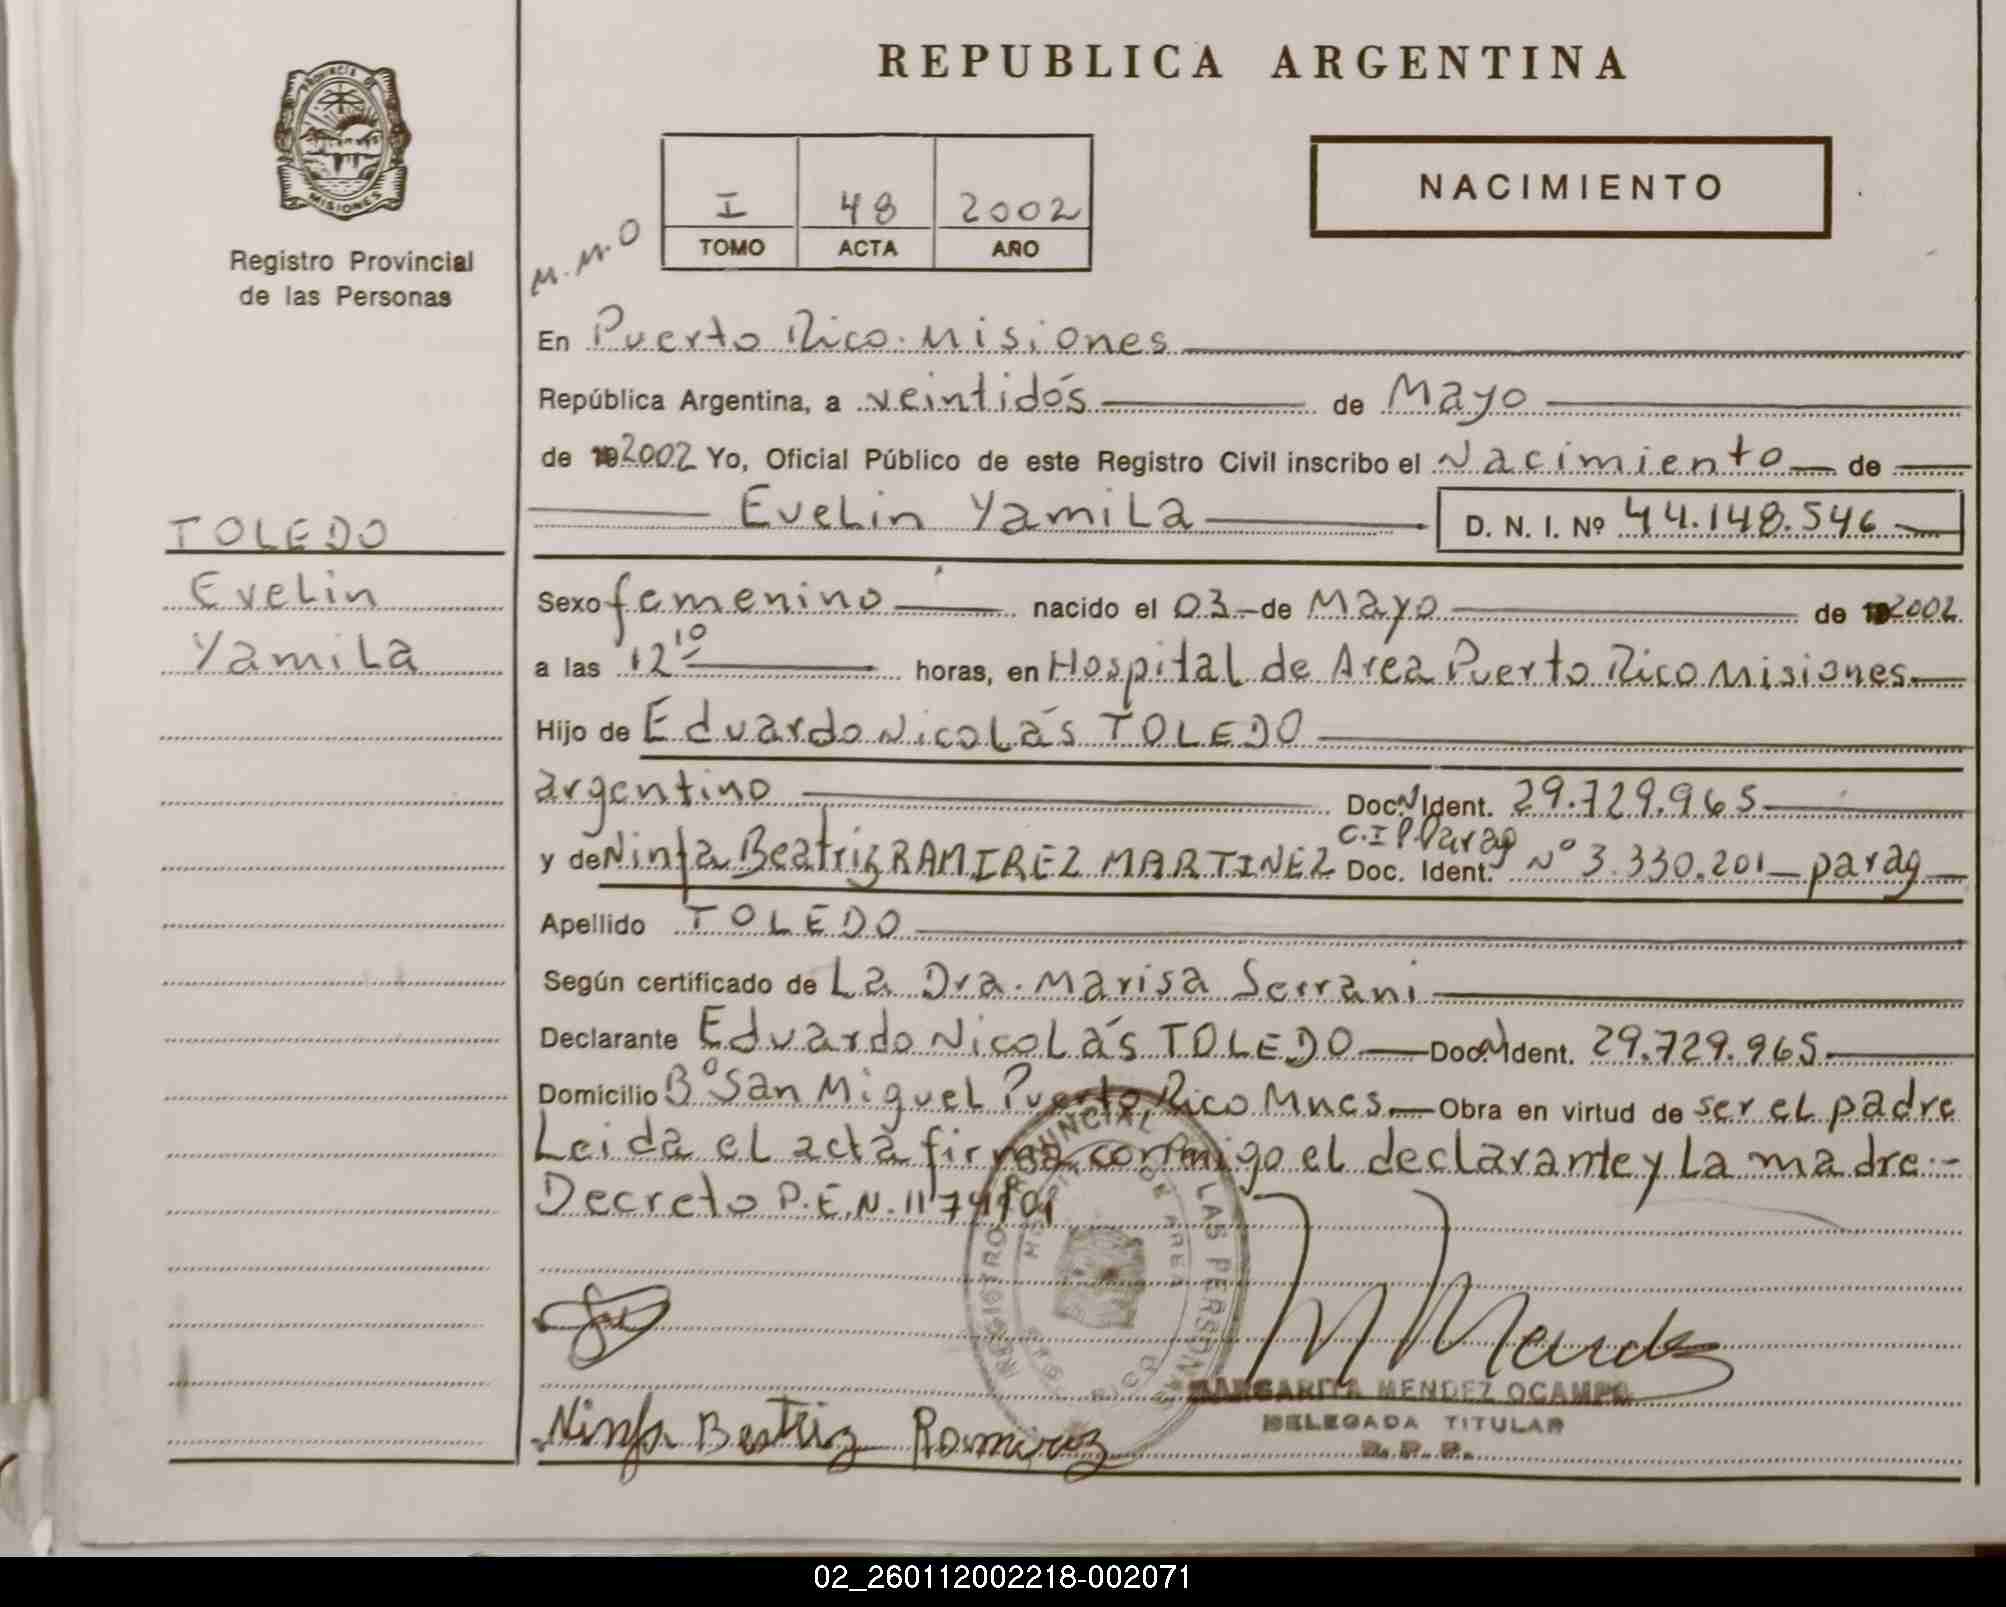 REPUBLICA ARGENTINA
PROVINCIA DE
MISIONES
Registro Provincial
de las Personas
NACIMIENTO
I 48 2002
TOMO ACTA AÑO
M.M.O
En Puerto Rico. Misiones
República Argentina, a veintidós de Mayo
de 2002 Yo, Oficial Público de este Registro Civil inscribo el Nacimiento de
Evelin Yamila D. N. I. Nº 44.148.546
TOLEDO
Evelin
Yamila
Sexo femenino nacido el 03 de Mayo de 2002
a las 12 10 horas, en Hospital de Area Puerto Rico Misiones
Hijo de Eduardo Nicolás TOLEDO
argentino Doc. N. Ident. 29.729.965
y de Ninfa Beatriz RAMIREZ MARTINEZ C.I.P. Parag Doc. Ident. Nº 3.330.201 parag
Apellido TOLEDO
Según certificado de La Dra. Marisa Serrani
Declarante Eduardo Nicolás TOLEDO Doc. N. Ident. 29.729.965
Domicilio Bº San Miguel Puerto Rico Mnes. Obra en virtud de ser el padre
Leida el acta firma conmigo el declarante y La madre.-
Decreto P.E.N. 1174/01
REGISTRO PROVINCIAL DE LAS PERSONAS
HOSPITAL DE AREA
Ninfa Beatriz Ramirez
MARGARITA MENDEZ OCAMPO
DELEGADA TITULAR
R. P. P.
02_260112002218-002071